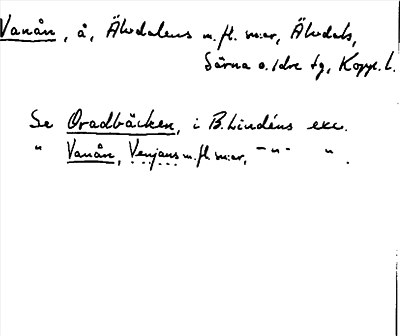 Vanån, å, Älvdalens m.fl. snr, Älvdals,
Särna o. Idre tg, Kopp. l.
Se Oradbäcken, i B. Lindéns exc.
" Vanån, Venjans m.fl. snr, -"- " .